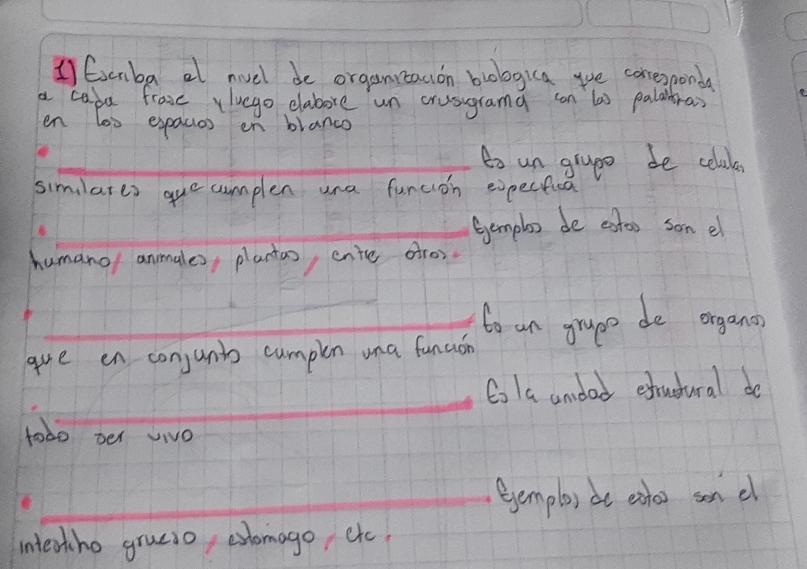 1) Escriba el nivel de organización biologica que corresponda
a cada frase y luego elabore un crusigrama con las palabras
en los espacios en blanco
Es un grupo de celulas
similares que cumplen una función especifica
Ejemplos de estos son el
humano, animales, plantas, entre otros.
Es un grupo de organos
que en conjunto cumplen una función
Es la unidad estructural de
todo ser vivo
Ejemplos de estos son el
intestino grueso, estomago, etc.